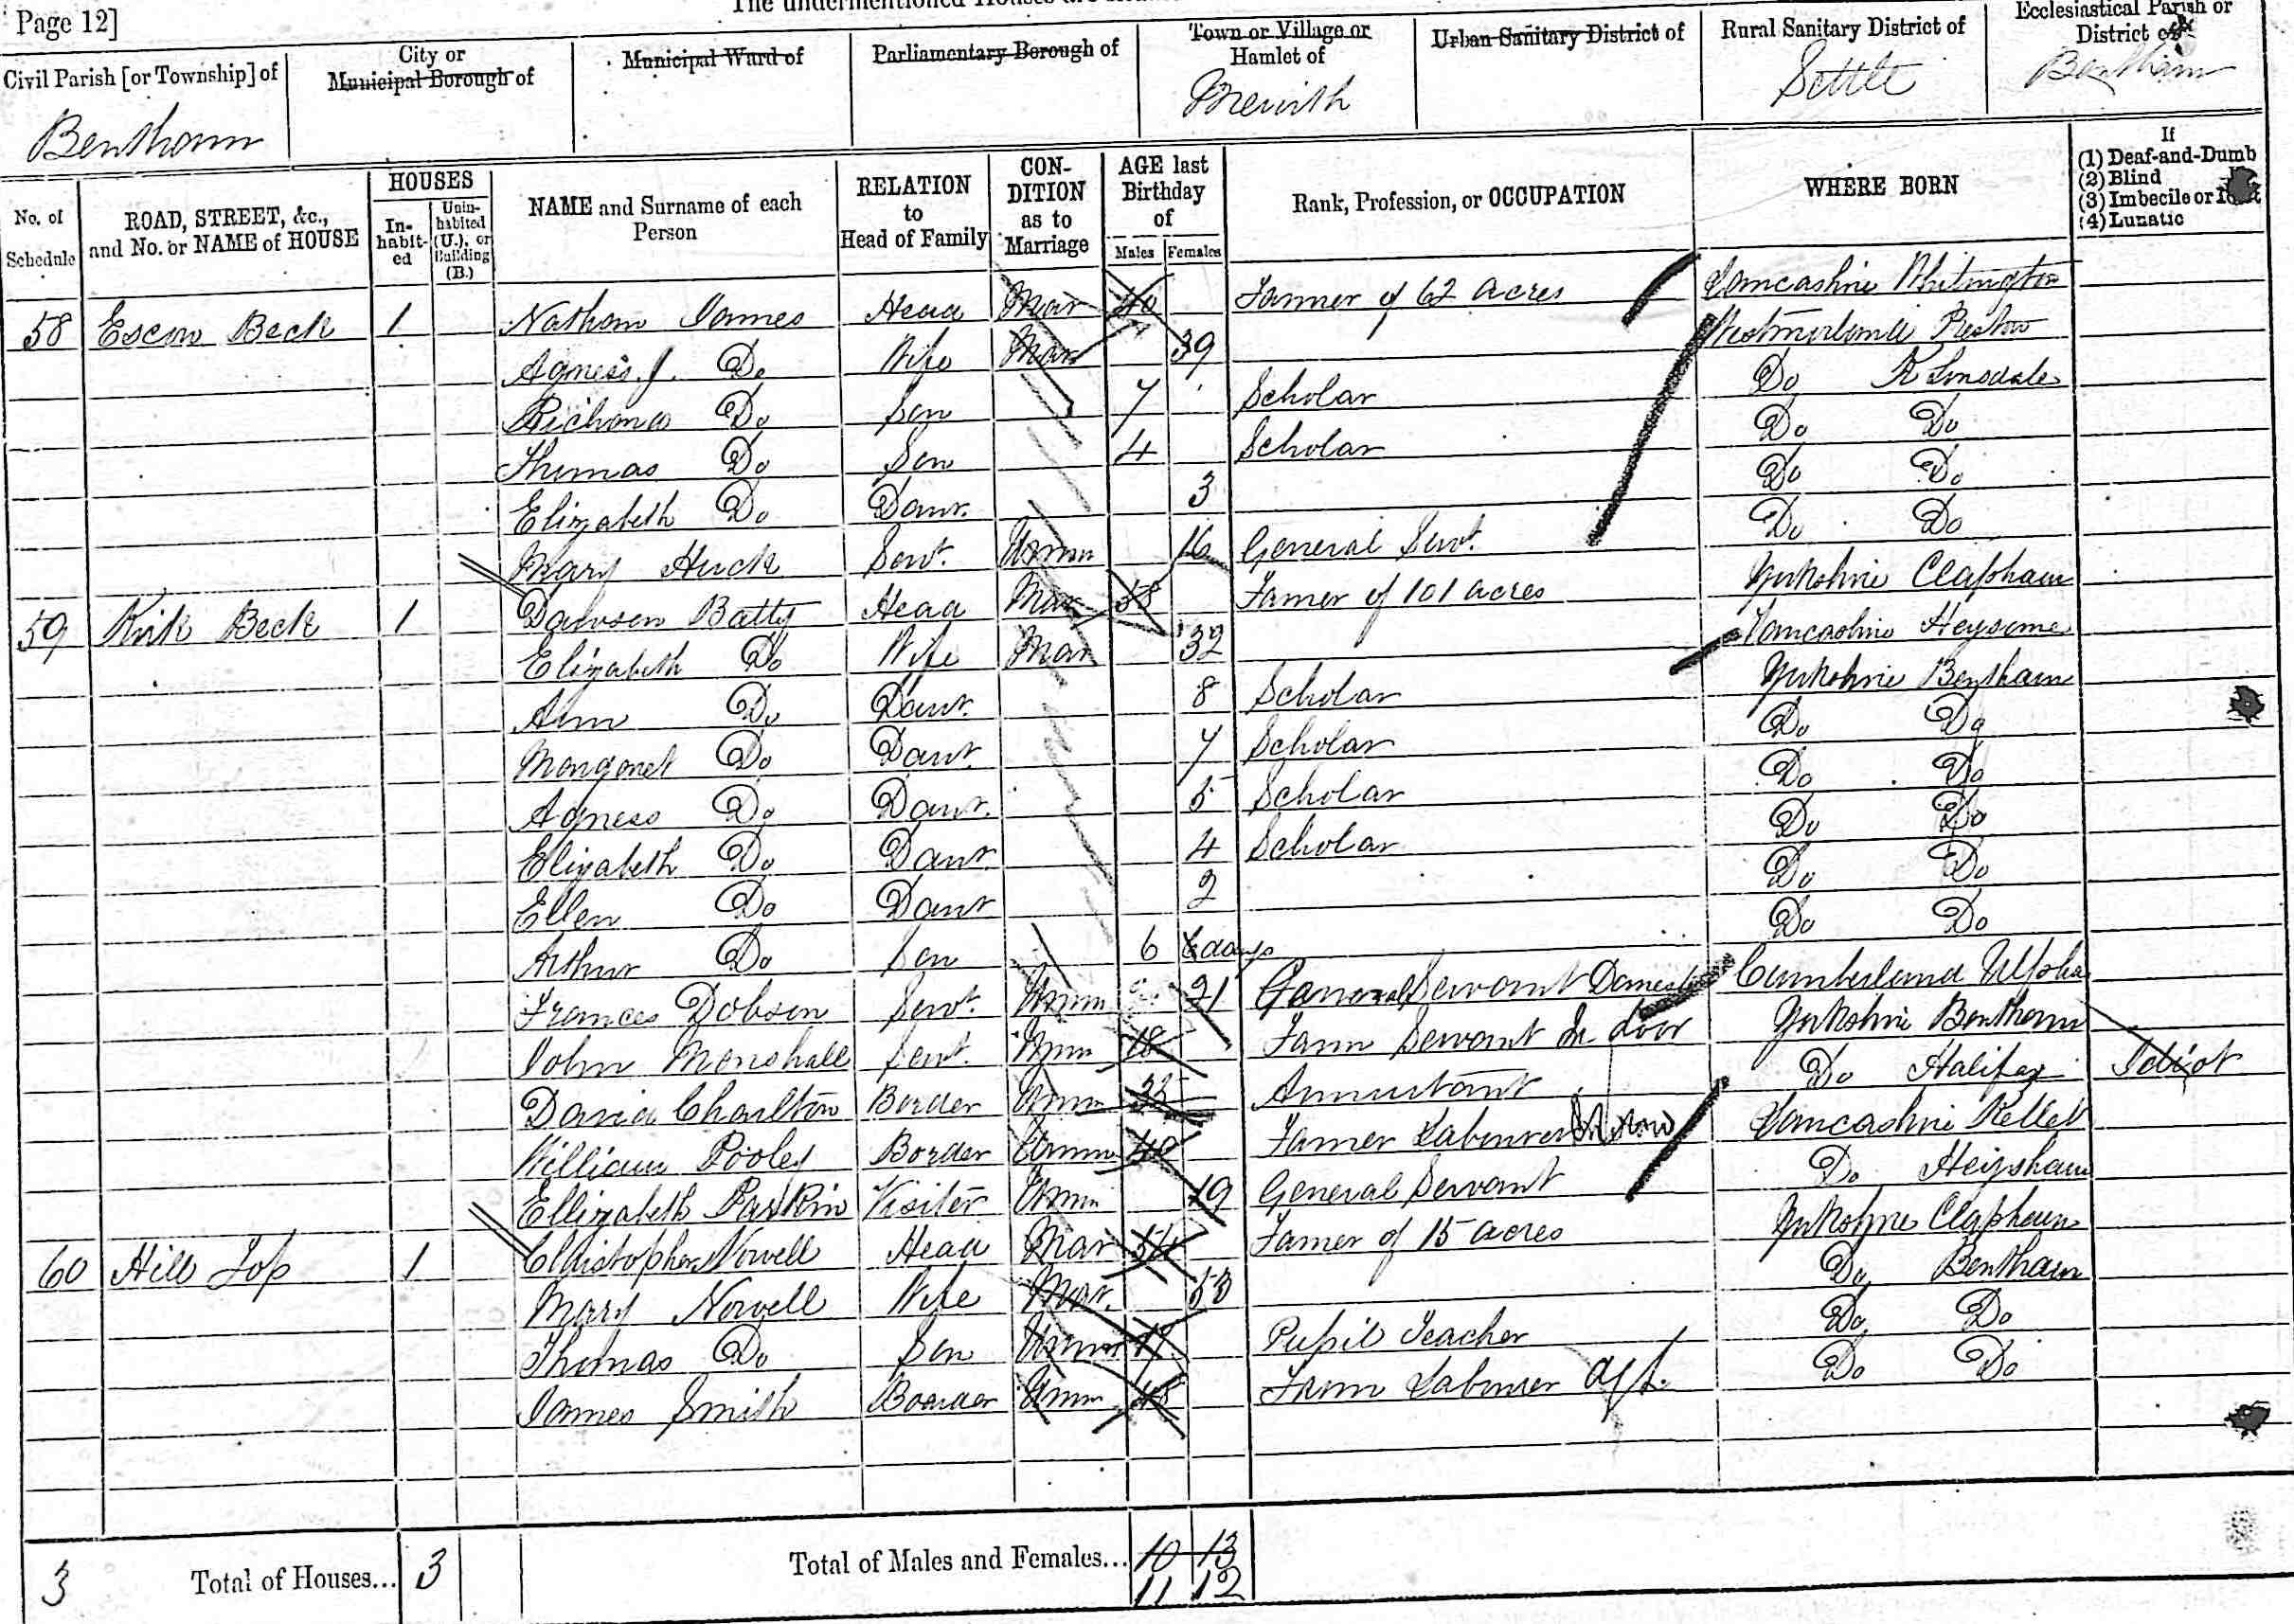 Page 12]
The undermentioned Houses are
Civil Parish [or Township] of
City or Municipal Borough of
Municipal Ward of
Parliamentary Borough of
Town or Village or Hamlet of
Urban Sanitary District of
Rural Sanitary District of
Ecclesiastical Parish or District of
Bentham
Mewith
Settle
Bentham
No. of Schedule
ROAD, STREET, &c., and No. or NAME of HOUSE
HOUSES
In-habit-ed
Unin-habited (U.), or Building (B.)
NAME and Surname of each Person
RELATION to Head of Family
CON-DITION as to Marriage
AGE last Birthday of
Males Females
Rank, Profession, or OCCUPATION
WHERE BORN
If
(1) Deaf-and-Dumb
(2) Blind
(3) Imbecile or Idiot
(4) Lunatic
58 Escow Beck 1 Nathan James Head Mar 40 Farmer of 62 acres Lancashire Whitington
Agness J. Do Wife Mar 39 Westmorland Preston
Richard Do Son 7 Scholar Do K Lonsdale
Thomas Do Son 4 Scholar Do Do
Elizabeth Do Daur. 3 Do Do
Mary Huck Servt. Unmn 16 General Servt. Do Do
59 Kirk Beck 1 Dawson Batty Head Mar 38 Farmer of 101 acres Yorkshire Clapham
Elizabeth Do Wife Mar 32 Lancashire Heysome
Ann Do Daur. 8 Scholar Yorkshire Bentham
Margaret Do Daur. 7 Scholar Do Do
Agness Do Daur. 5 Scholar Do Do
Elizabeth Do Daur 4 Scholar Do Do
Ellen Do Daur 2 Do Do
Arthur Do Son 6 days Do Do
Frances Dobson Servt. Unmn 21 General Servant Domestic Cumberland Ulpha
John Marshall Servt. Unmn 18 Farm Servant In door Yorkshire Bentham
David Charlton Border Unmn Annuitant Do Halifax Idiot
William Pooley Border Unmn 40 Farmer Labourer Lancashire Kellet
Ellizabeth Parkin Visiter Unmn 19 General Servant Do Heysham
60 Hill Top 1 Christopher Nowell Head Mar 54 Farmer of 15 acres Yorkshire Clapham
Mary Nowell Wife Mar. 53 Do Bentham
Thomas Do Son Unmn 17 Pupil Teacher Do Do
James Smith Boarder Unmn 48 Farm Labourer Do Do
3 Total of Houses... 3 Total of Males and Females... 10 13
11 12